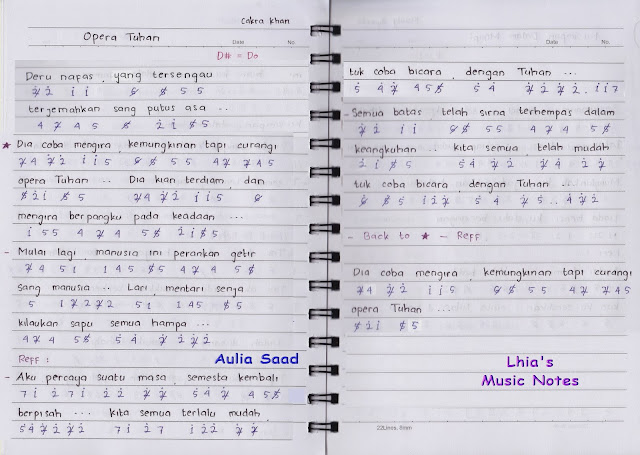 Cakra Khan
Opera Tuhan
Date No.
D# = Do
Deru napas, yang tersengau
i i 5 5
terjemahkan sang putus asa ..
4 4 5 2 i 5
★ Dia coba mengira, kemungkinan tapi curangi
4 2 i i 5 5 5 4 4 5
opera Tuhan .. Dia kian terdiam, dan
2 i 5 4 2 i i 5
mengira berpangku pada keadaan ...
i 5 5 4 4 5 2 i 5
- Mulai lagi, manusia ini perankan getir
4 5 1 1 4 5 5 4 4 5
sang manusia .. Lari, mentari senja
5 1 2 2 5 1 1 4 5 5
kilaukan sapu semua hampa ...
4 4 5 5 4 2 2
Reff :
Aulia Saad
- Aku percaya suatu masa, semesta kembali
7 i 2 7 i 2 2 5 4 4 5
berpisah ... kita semua terlalu mudah,
5 4 2 2 7 i 2 7 i 2 2
Date No.
tuk coba bicara, dengan Tuhan ...
5 4 4 5 5 4 2 2 . i i 7
- Semua batas, telah sirna terhempas dalam
2 i i 5 5 4 4 5
keangkuhan .. kita semua, telah mudah
2 i 5 5 4 2 4 2
tuk coba bicara dengan Tuhan ...
5 i 2 5 4 5 .. 4 2
- Back to ★ - Reff
Dia coba mengira, kemungkinan tapi curangi
4 2 i i 5 5 5 4 4 5
opera Tuhan ...
2 i 5
Lhia's
Music Notes
22Lines, 8mm